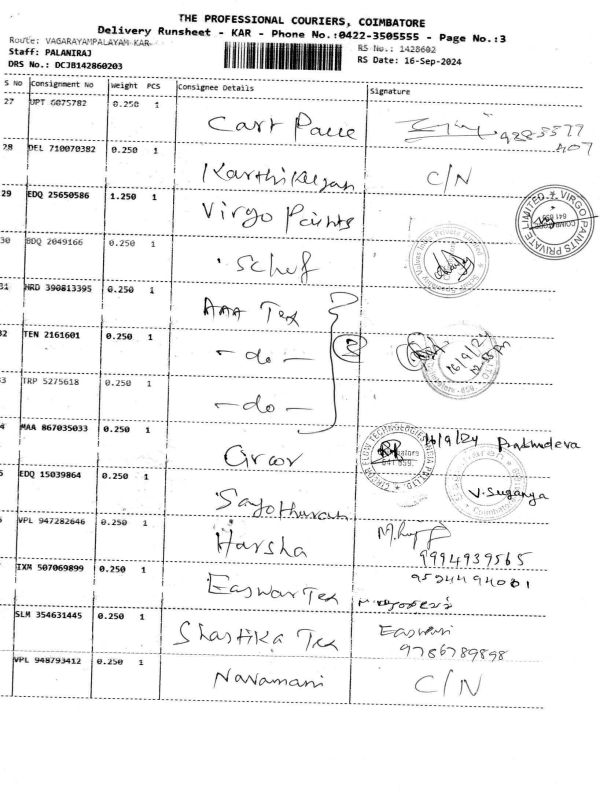 THE PROFESSIONAL COURIERS, COIMBATORE
Delivery Runsheet - KAR - Phone No.:0422-3505555 - Page No.:3
Route: VAGARAYAMPALAYAM KAR
RS No.: 1428602
Staff: PALANIRAJ
RS Date: 16-Sep-2024
DRS No.: DCJB142860203
S No Consignment No Weight PCS Consignee Details Signature
27 UPT 6075782 0.250 1
28 DEL 710070382 0.250 1 Karthikeyan C/N
29 EDQ 25650586 1.250 1 Virgo Paints VIRGO PAINTS PRIVATE LIMITED
30 BDQ 2049166 0.250 1
31 NRD 390813395 0.250 1 AAA Tex
32 TEN 2161601 0.250 1 - do - 16/9/24
33 TRP 5275618 0.250 1 - do -
4 MAA 867035033 0.250 1 16/9/24
EDQ 15039864 0.250 1 V. Suganya
VPL 947282646 0.250 1 Harsha 9994939565
IXM 507069899 0.250 1 Easwar Tex
SLM 354631445 0.250 1 Shastika Tex 9786789898
VPL 948793412 0.250 1 Navamani C/N